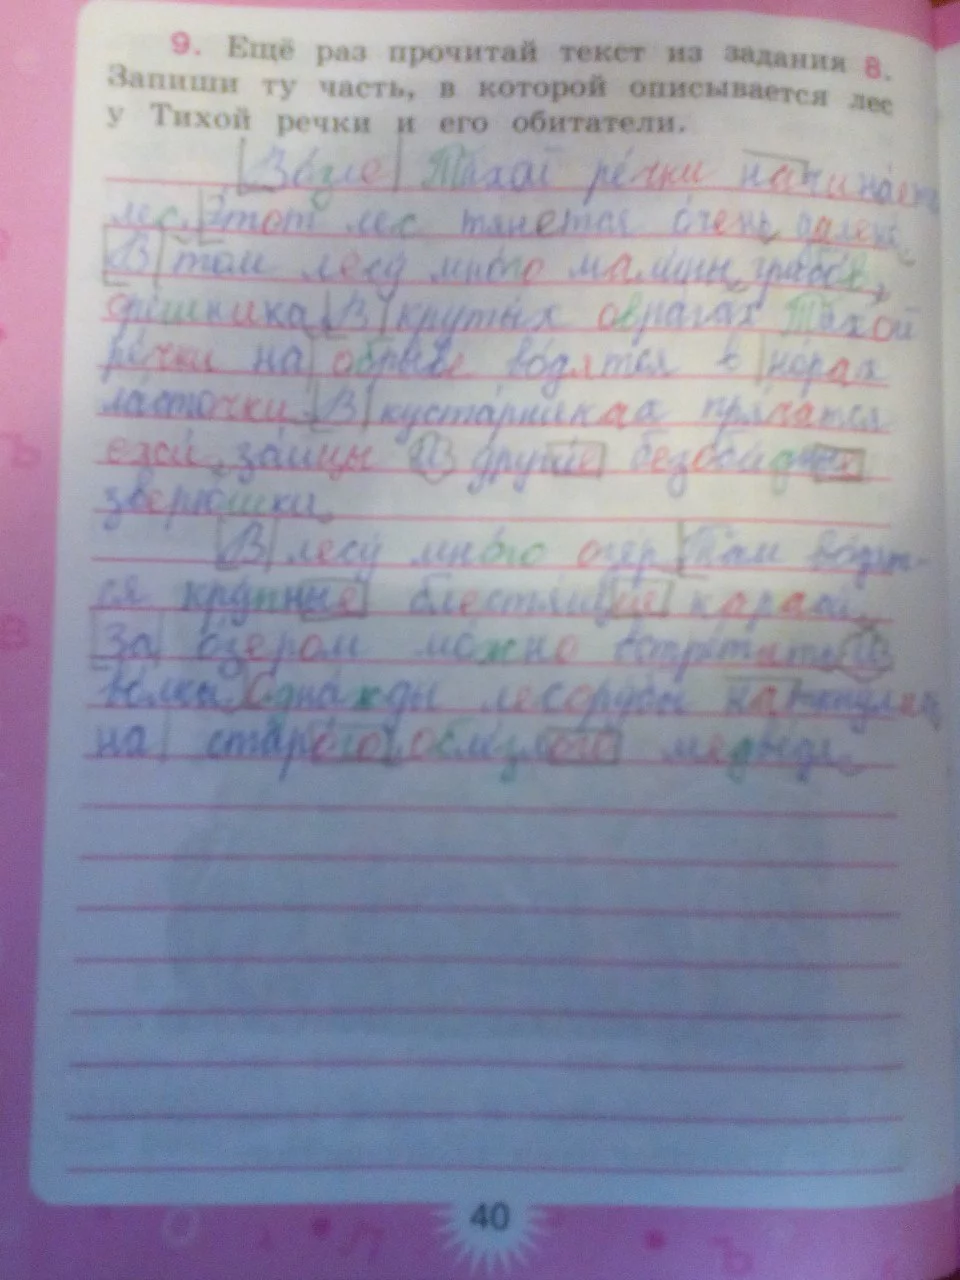 9. Ещё раз прочитай текст из задания 8.
Запиши ту часть, в которой описывается лес
у Тихой речки и его обитатели.
Возле Тихой речки начинает
лес. Этот лес тянется очень далеко.
В том лесу много малины, грибов,
орешника. В крутых оврагах Тихой
речки на обрыве водятся в норах
ласточки. В кустарниках прячатся
ежи, зайцы и другие безобидные
зверюшки.
В лесу много озёр. Там водят-
ся крупные блестящие караси.
За озером можно встретить и
белки. Однажды лесорубы наткнулись
на старого облезлого медведя.
40